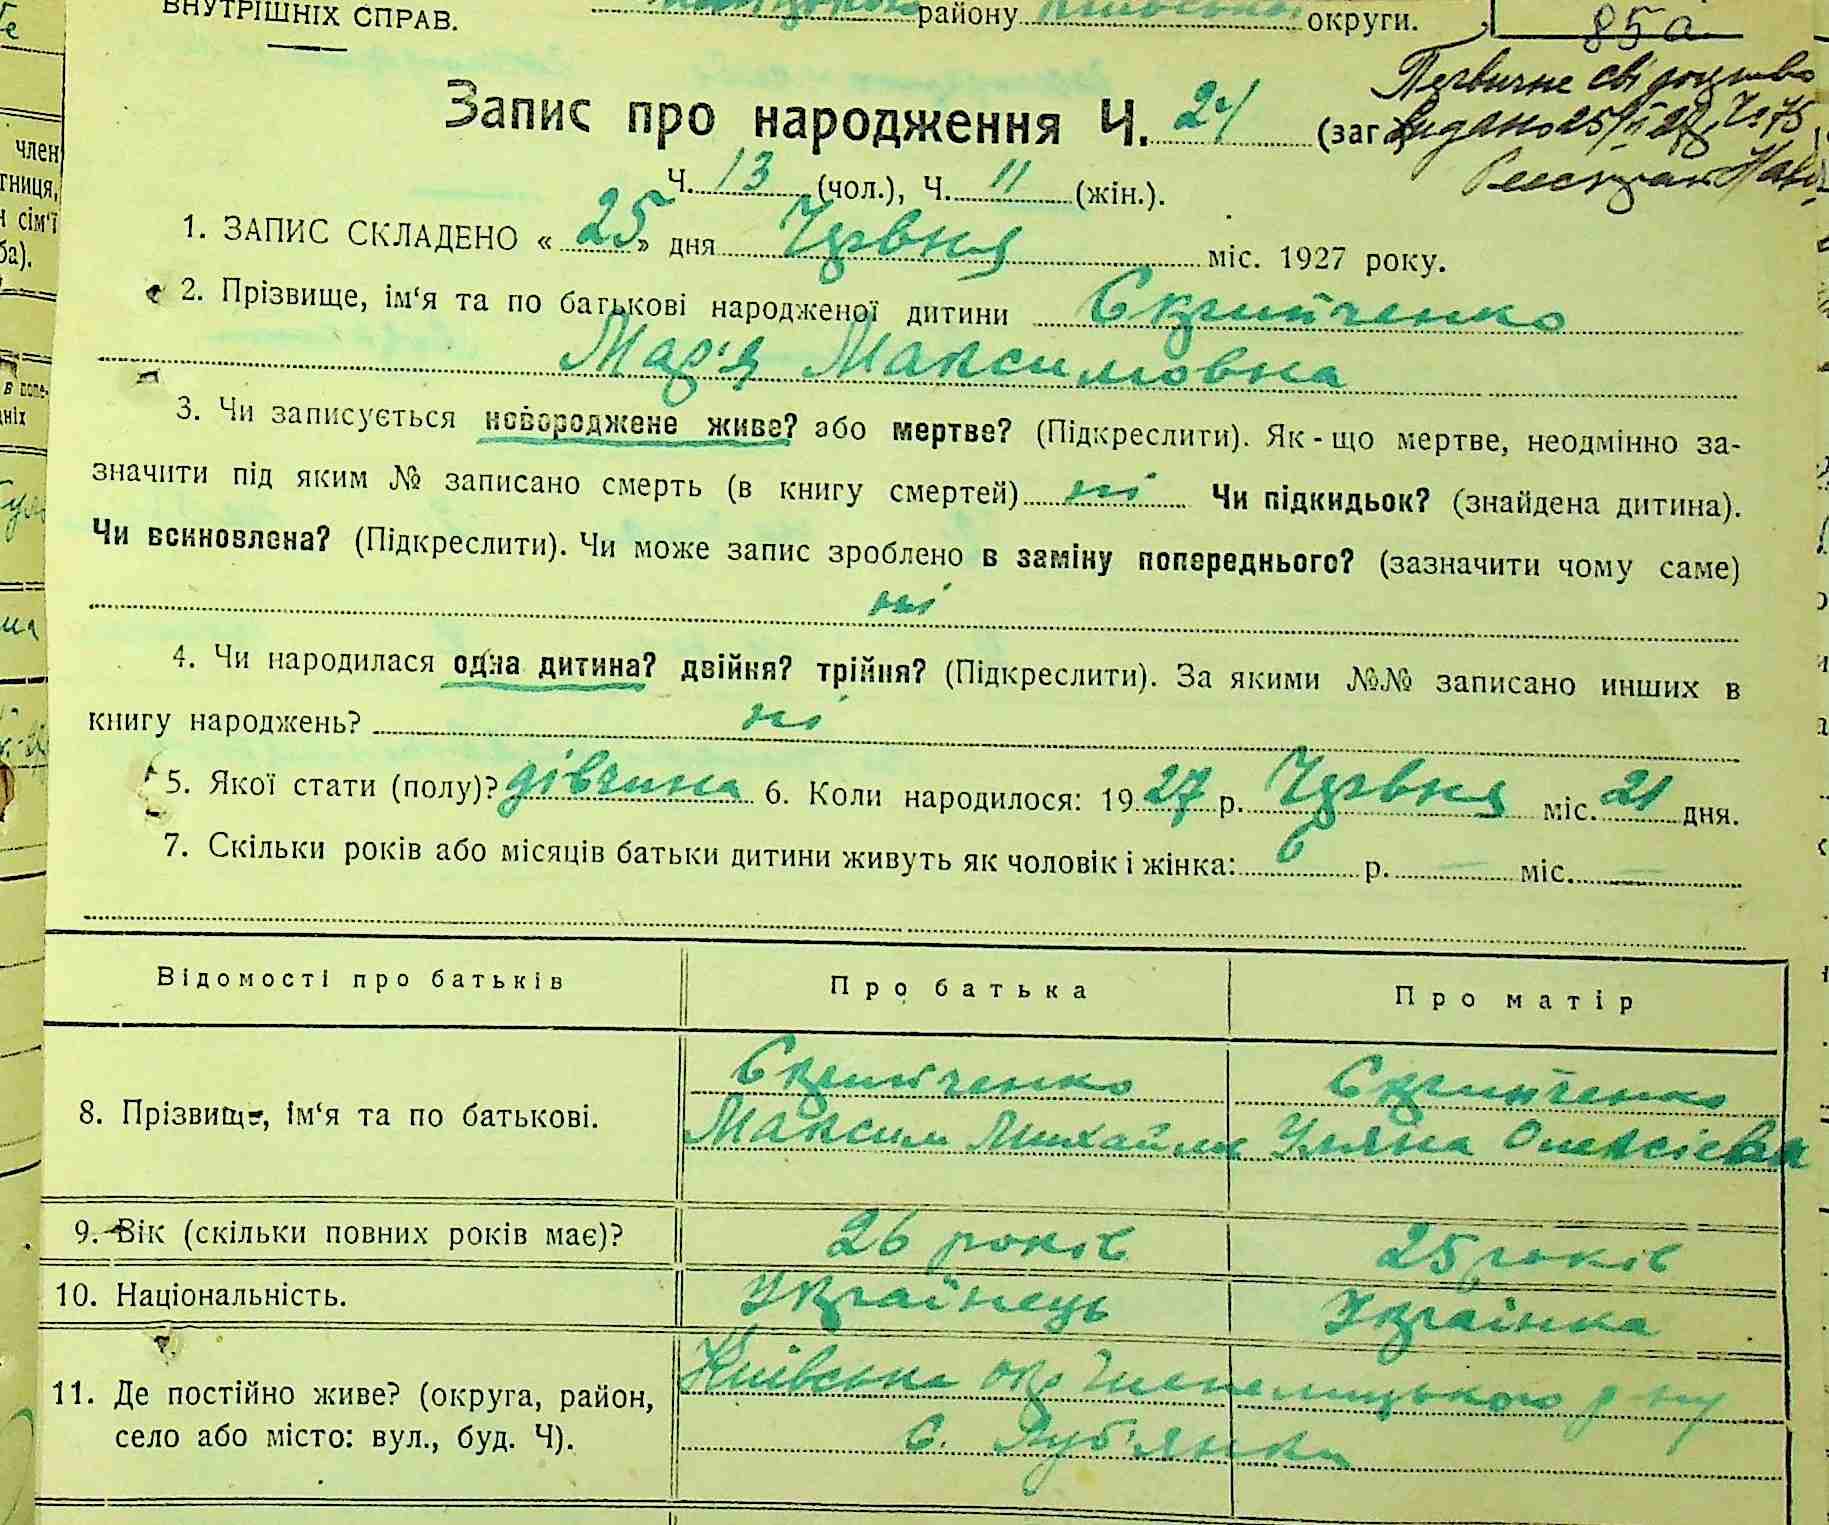 ВНУТРІШНІХ СПРАВ. району округи.
85а
Первичне свідоцтво
Запис про народження Ч. 24 (заг видано 25/II 28 Ч. 75
Ч. 13 (чол.), Ч. 11 (жін.).
1. ЗАПИС СКЛАДЕНО « 25 » дня Червня міс. 1927 року.
2. Прізвище, ім'я та по батькові народженої дитини Скрипченко
Мар'я Максимовна
3. Чи записується новороджене живе? або мертве? (Підкреслити). Як-що мертве, неодмінно за-
значити під яким № записано смерть (в книгу смертей) ні Чи підкидьок? (знайдена дитина).
Чи всиновлена? (Підкреслити). Чи може запис зроблено в заміну попереднього? (зазначити чому саме)
ні
4. Чи народилася одна дитина? двійня? трійня? (Підкреслити). За якими №№ записано инших в
книгу народжень? ні
5. Якої стати (полу)? дівчина 6. Коли народилося: 1927 р. Червня міс. 21 дня.
7. Скільки років або місяців батьки дитини живуть як чоловік і жінка: 6 р. — міс. —
Відомості про батьків Про батька Про матір
Скрипченко Скрипченко
8. Прізвище, ім'я та по батькові. Максим Михайлів Уляна Олексієвна
9. Вік (скільки повних років має)? 26 років 25 років
10. Національність. Українець Українка
11. Де постійно живе? (округа, район, Київська окр Шепелицького р-ну
село або місто: вул., буд. Ч). с. Луб'янка